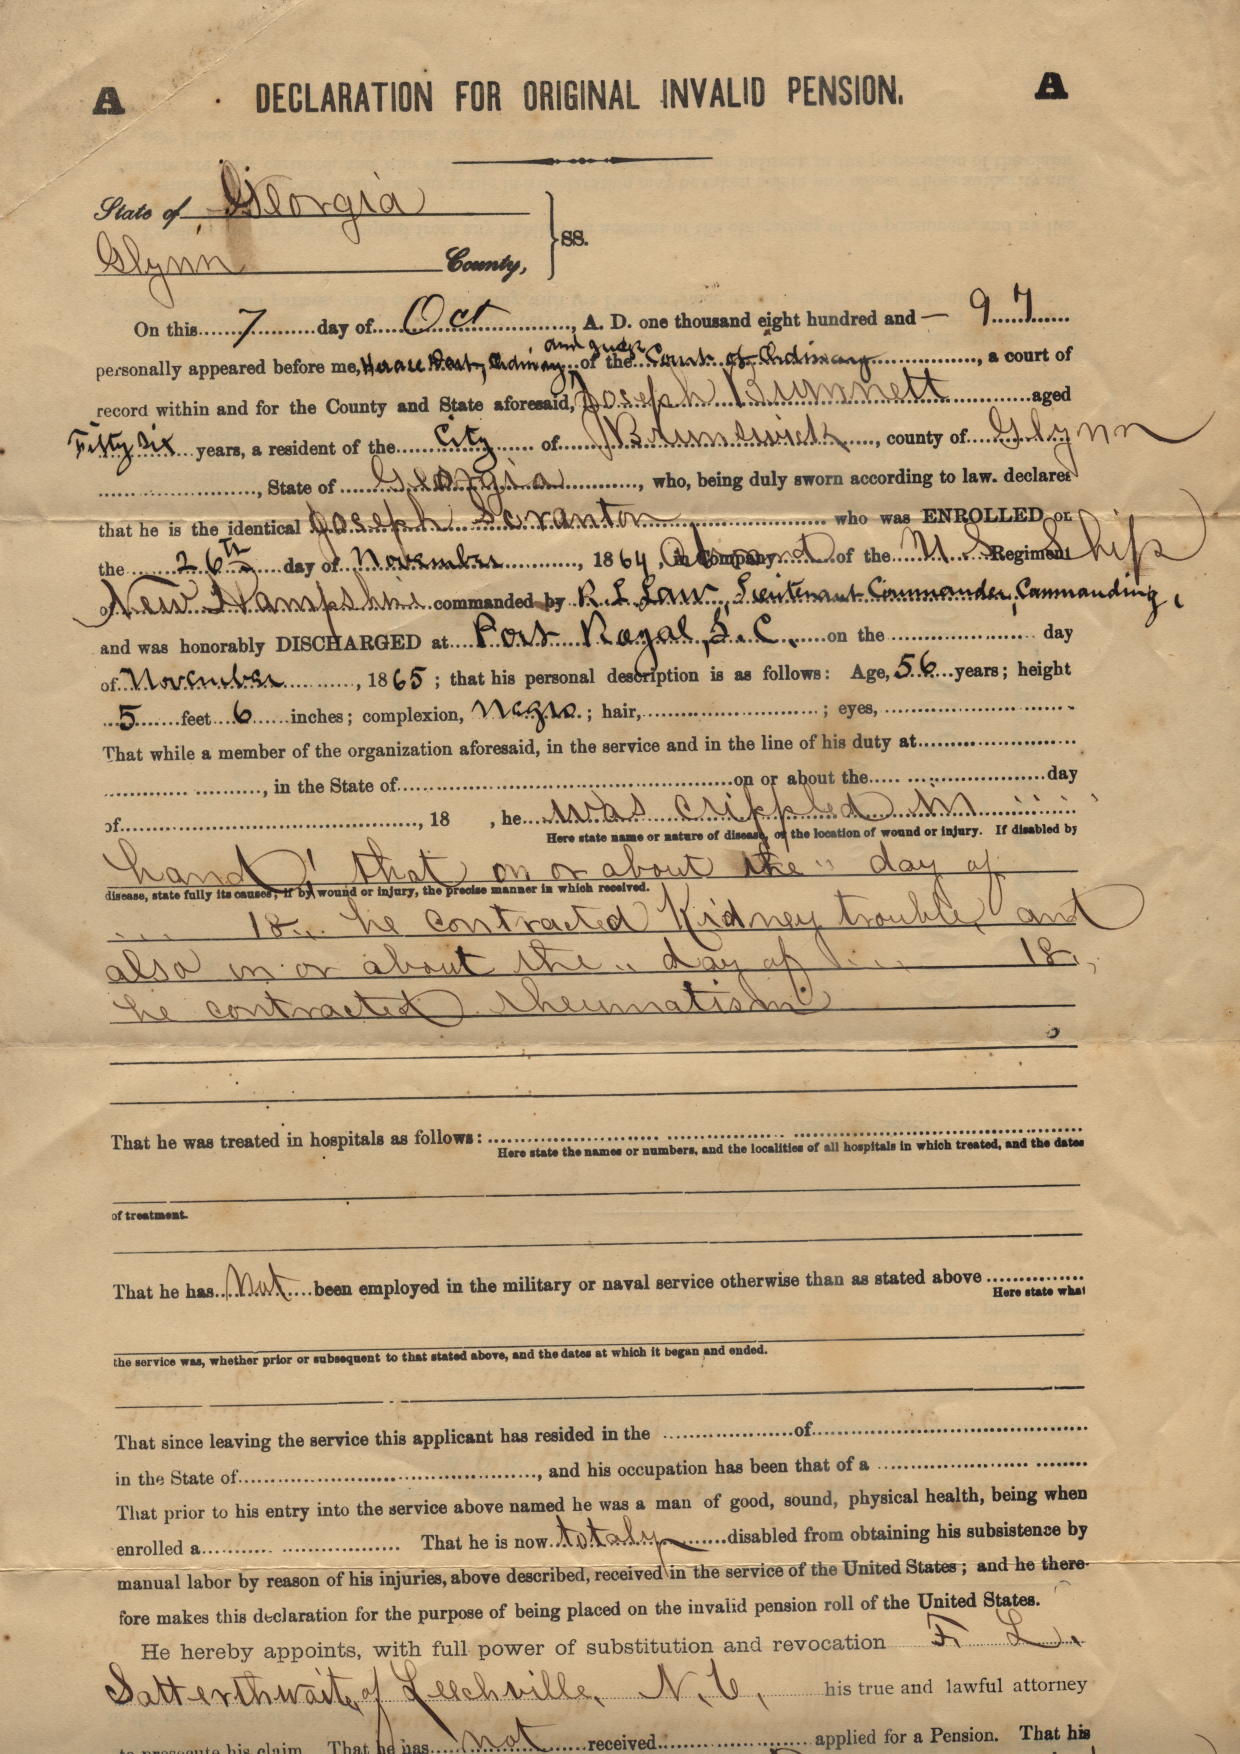 A DECLARATION FOR ORIGINAL INVALID PENSION. A
State of Georgia
Glynn County, } ss.
On this 7 day of Oct, A. D. one thousand eight hundred and — 97
and judge
personally appeared before me, Horace Dart, Ordinary of the Court of Ordinary, a court of
record within and for the County and State aforesaid, Joseph Bunnett aged
Fifty Six years, a resident of the City of Brunswick, county of Glynn
, State of Georgia, who, being duly sworn according to law. declares
that he is the identical Joseph Scranton who was ENROLLED on
the 26th day of November, 1864, in Company of the U.S. Regiment Ship
of New Hampshire commanded by R L Law, Lieutenant Commander, Commanding,
and was honorably DISCHARGED at Port Royal, S. C., on the day
of November, 1865; that his personal description is as follows: Age, 56 years; height
5 feet 6 inches; complexion, Negro; hair, ; eyes,
That while a member of the organization aforesaid, in the service and in the line of his duty at
, in the State of on or about the day
of , 18 , he was crippled in
Here state name or nature of disease, or the location of wound or injury. If disabled by
hand; that on or about the day of
disease, state fully its causes; if by wound or injury, the precise manner in which received.
18 he contracted Kidney trouble, and
also in or about the day of 18
he contracted rheumatism
That he was treated in hospitals as follows:
Here state the names or numbers, and the localities of all hospitals in which treated, and the dates
of treatment.
That he has not been employed in the military or naval service otherwise than as stated above
Here state what
the service was, whether prior or subsequent to that stated above, and the dates at which it began and ended.
That since leaving the service this applicant has resided in the of
in the State of , and his occupation has been that of a
That prior to his entry into the service above named he was a man of good, sound, physical health, being when
enrolled a That he is now totaly disabled from obtaining his subsistence by
manual labor by reason of his injuries, above described, received in the service of the United States; and he there-
fore makes this declaration for the purpose of being placed on the invalid pension roll of the United States.
He hereby appoints, with full power of substitution and revocation F. L.
Satterthwaite of Leechville, N. C, his true and lawful attorney
to prosecute his claim. That he has not received applied for a Pension. That his